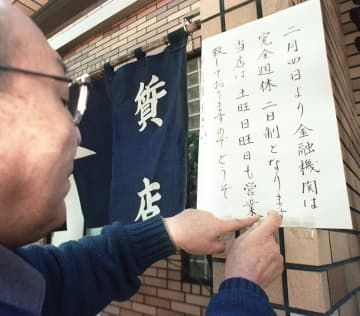 二月四日より金融機関は
完全週休二日制となります
当店は土曜日曜日も営業
致しておりますのでどうぞ
質店